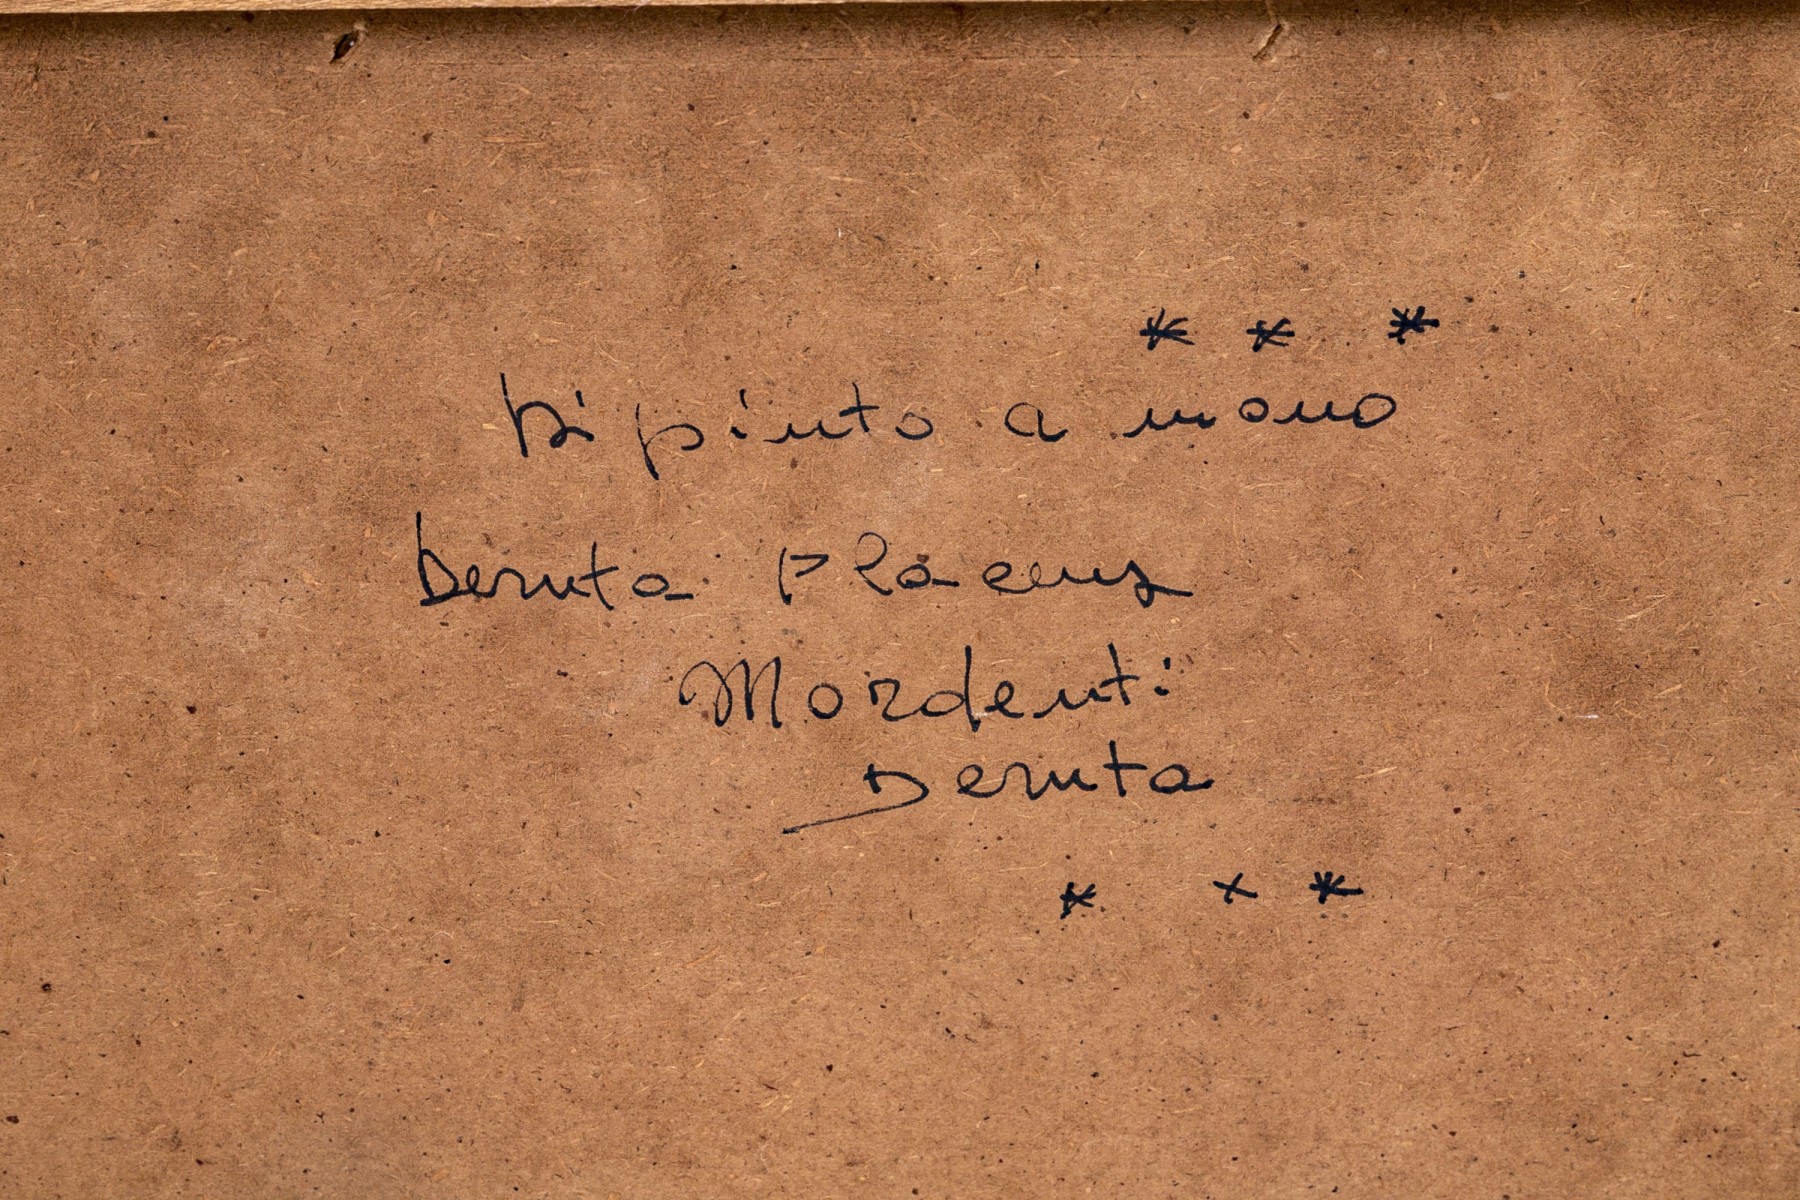 * * *
Dipinto a mano
Deruta Placens
Mordenti
Deruta
* × *